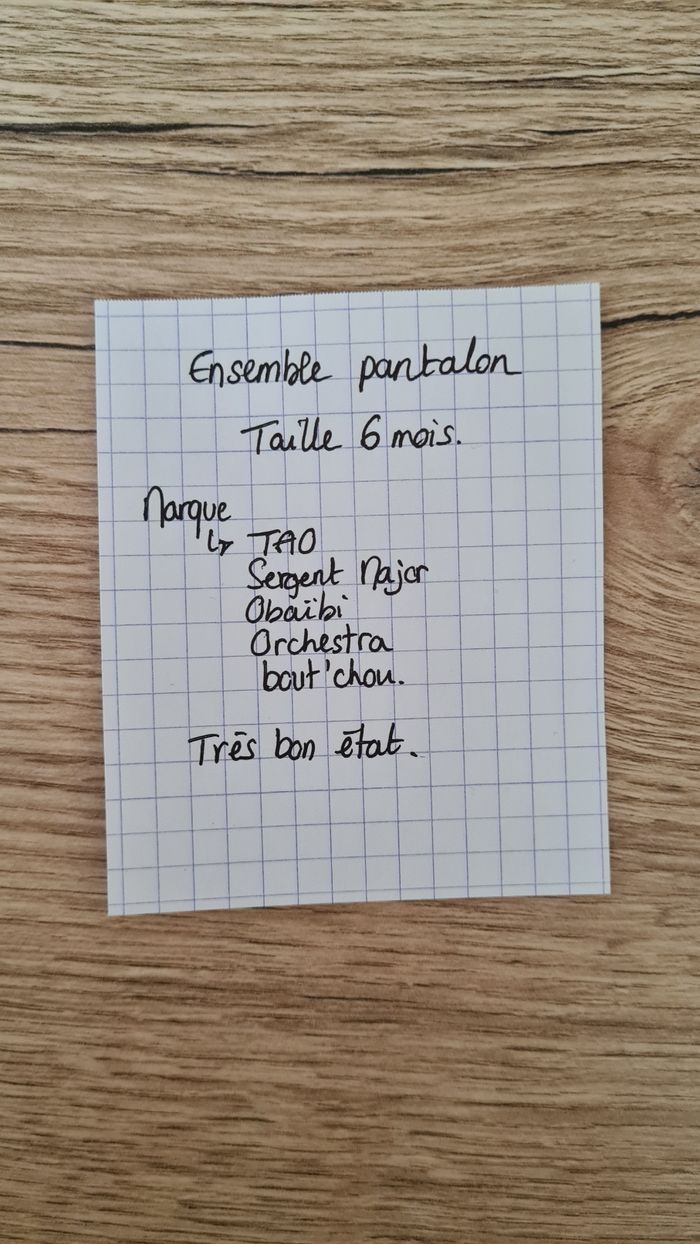 Ensemble pantalon
Taille 6 mois.
Marque
↳ TAO
Sergent Major
Obaïbi
Orchestra
bout'chou.
Très bon état.